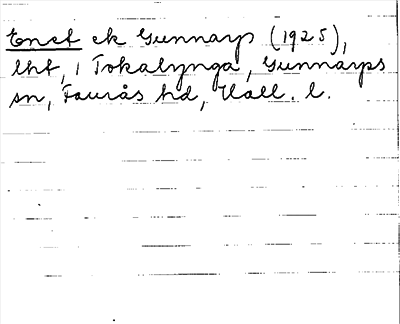 Enet ek Gunnarp (1925),
lht, i Tokalynga, Gunnarps
sn, Faurås hd, Hall. l.